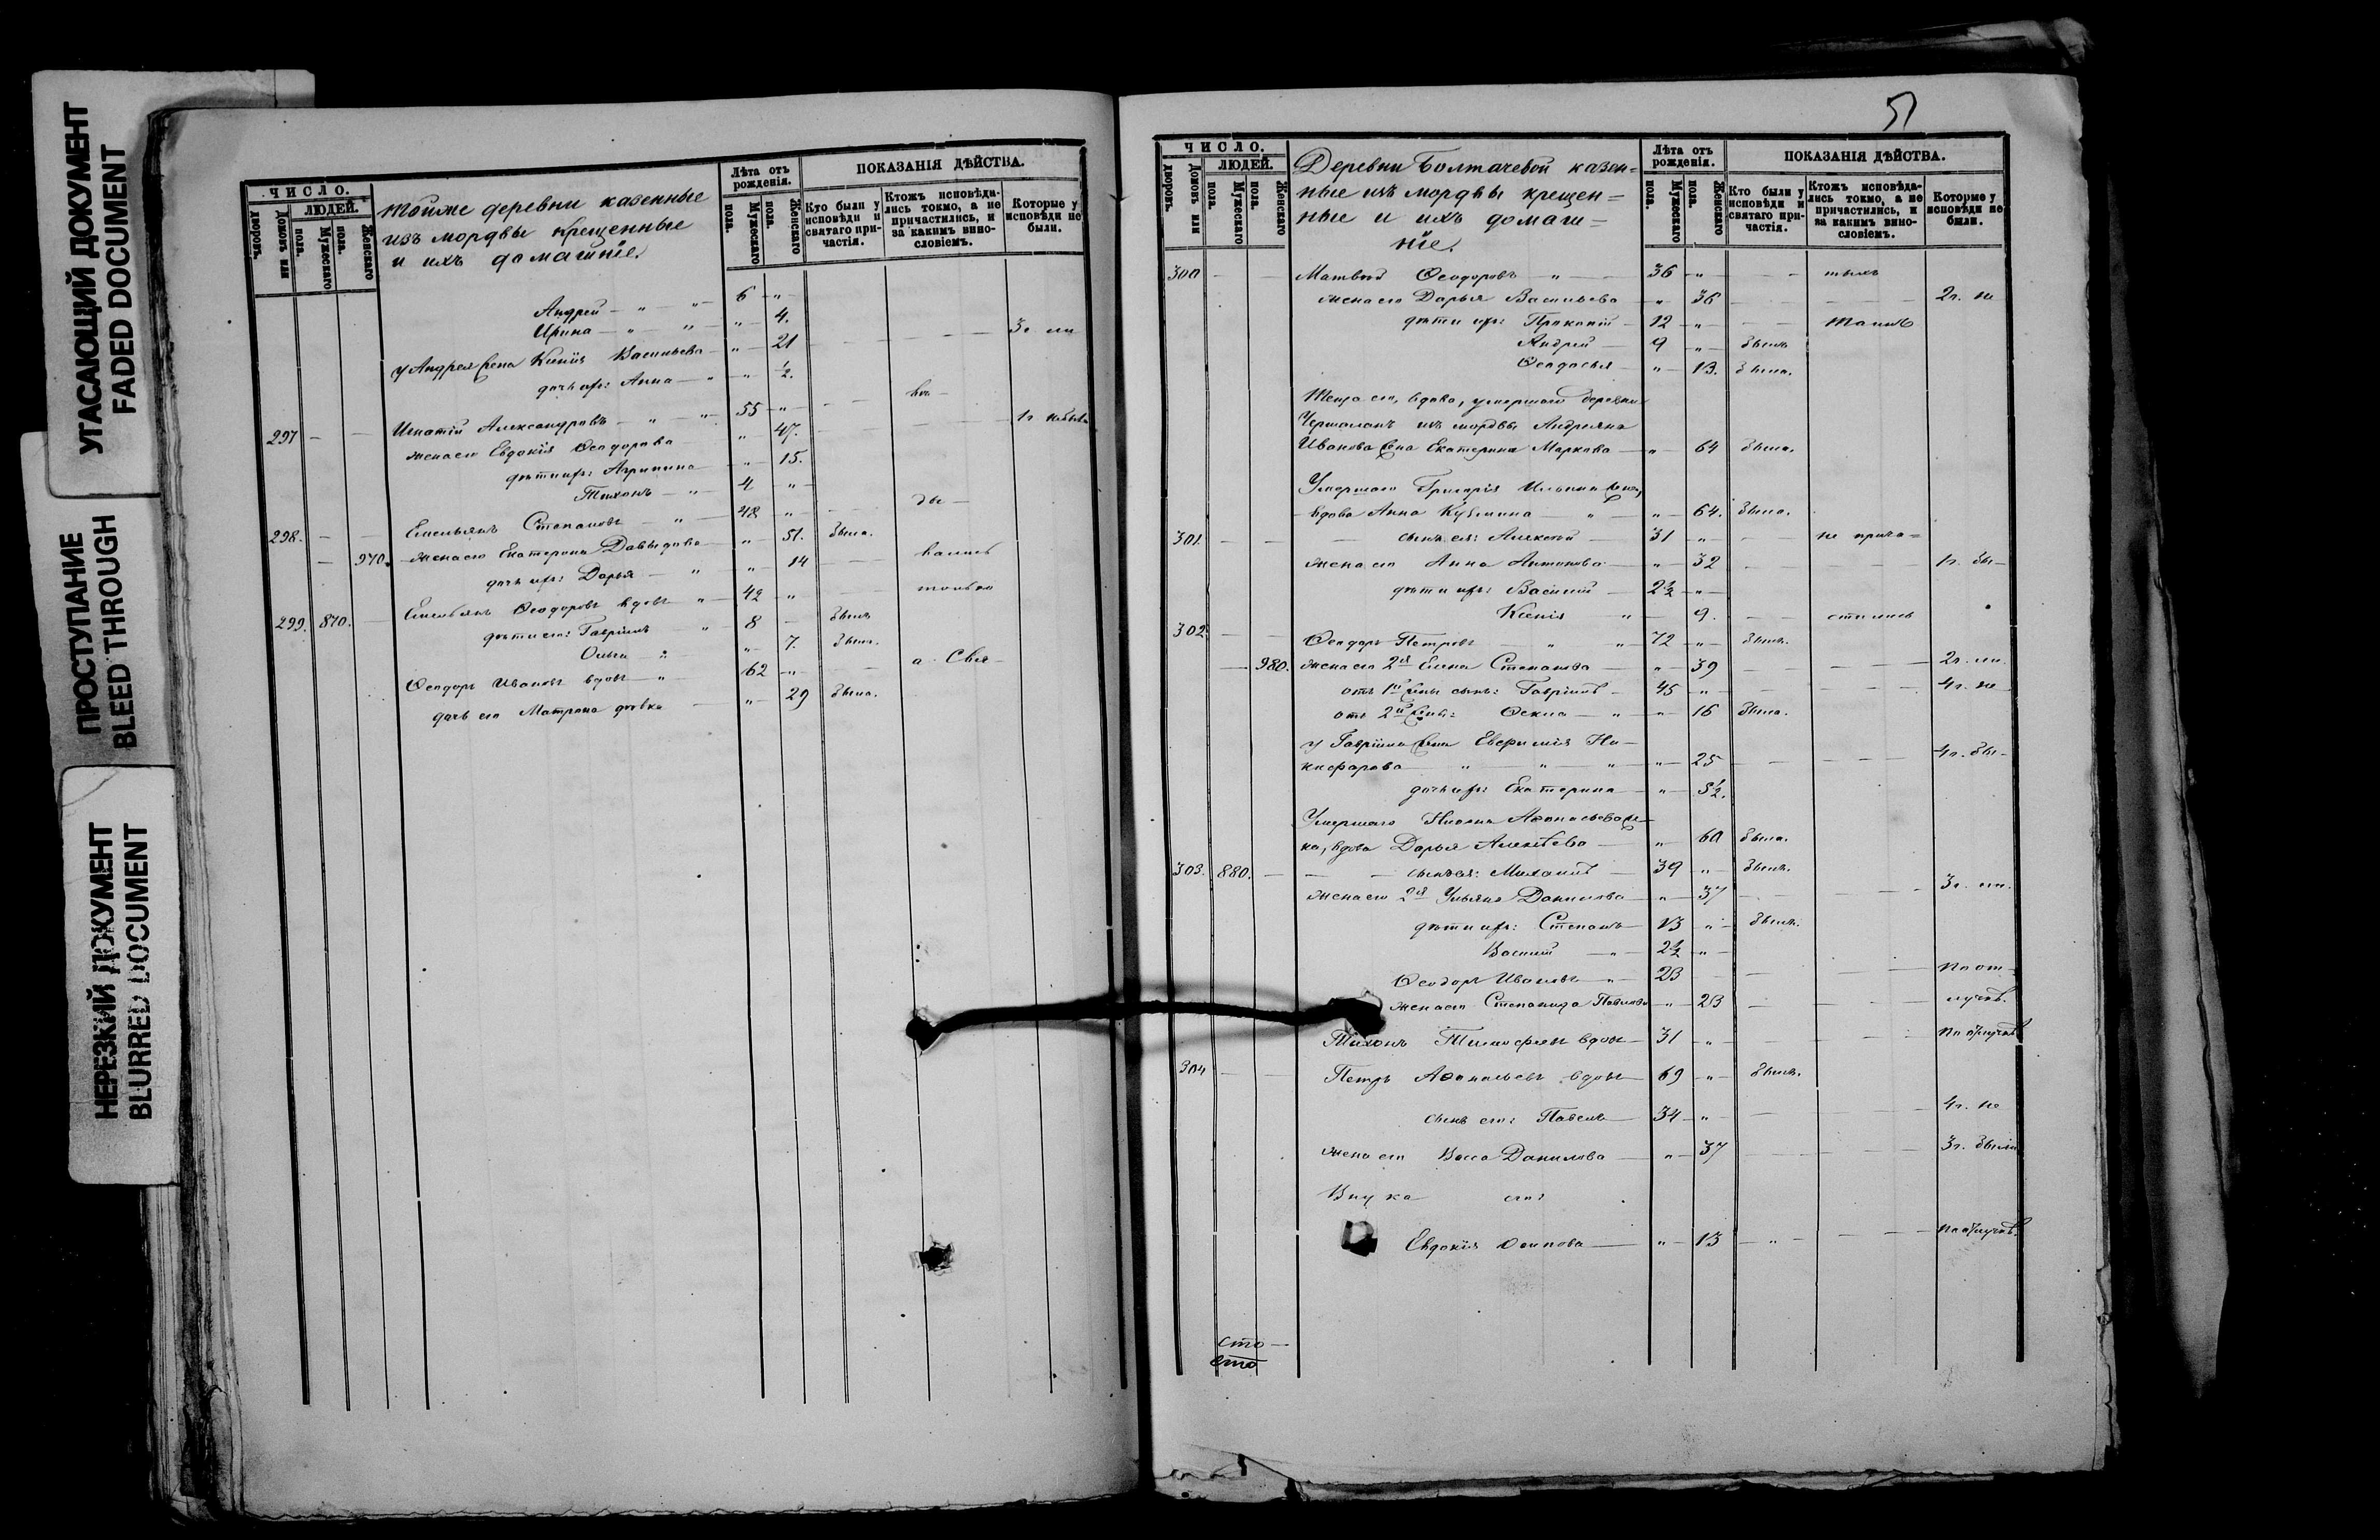 УГАСАЮЩИЙ ДОКУМЕНТ
FADED DOCUMENT
ПРОСТУПАНИЕ
BLEED THROUGH
НЕРЕЗКИЙ ДОКУМЕНТ
BLURRED DOCUMENT
ЧИСЛО.
ЛЮДЕЙ.
Домовъ или дворовъ.
Мужескаго пола.
Женскаго пола.
Тойже деревни казенные
изъ мордвы крещенные
и ихъ домашніе.
Лѣта отъ рожденія.
Мужескаго пола.
Женскаго пола.
ПОКАЗАНІЯ ДѢЙСТВА.
Кто были у исповѣди и святаго причастія.
Ктожъ исповѣдались токмо, а не причастились, и за какимъ винословіемъ.
Которые у исповѣди не были.
Андрей — " — " — 6 — "
Ирина — " — " — " — 4.
у Андрея жена Ксенія Васильева — " — 21
дочь ихъ: Анна — " — " — ½.
297 — — Игнатій Александровъ — " — " — 55 — "
жена его Евдокія Ѳеодорова " — 47.
дѣти ихъ: Агрипина — " — 15.
Тихонъ — " — 4 "
298. — — Емельянъ Степановъ — " — 48 — "
— 970. жена его Екатерина Давыдова — " — 51. была.
дочь ихъ: Дарья — " — " — 14
299. 870. — Емельянъ Ѳеодоровъ вдовъ " — 42 — " только
дѣти его: Гавріилъ — " — 8 — былъ
Ольга — " — 7. была.
Ѳеодоръ Ивановъ вдовъ — " — 62 — "
дочь его Матрона дѣвка — " — 29 была.
51
ЧИСЛО.
ЛЮДЕЙ.
Домовъ или дворовъ.
Мужескаго пола.
Женскаго пола.
Деревни Болтачевой казен=
ные изъ мордвы крещен=
ные и ихъ домаш=
ніе.
Лѣта отъ рожденія.
Мужескаго пола.
Женскаго пола.
ПОКАЗАНІЯ ДѢЙСТВА.
Кто были у исповѣди и святаго причастія.
Ктожъ исповѣдались токмо, а не причастились, и за какимъ винословіемъ.
Которые у исповѣди не были.
300 — — Матвѣй Ѳеодоровъ — " — 36 — " —
жена его Дарья Васильева — " — 36 — 2г. не
дѣти ихъ: Прокопій — 12 — "
Андрей — 9 — " былъ
Ѳеодосья — " — 13. была.
Теща его, вдова, умершаго деревни
изъ мордвы Андреяна
Иванова жена Екатерина Маркова — " 64 была.
Умершаго Григорія Ильина жена,
вдова Анна Кузмина — " — " — 64. была.
301. — — сынъ ея: Алексѣй — 31 — " — не прича=
жена его Анна Антонова — " — 32 — 1г. бы-
дѣти ихъ: Василій — 2½ — "
Ксенія — " — 9. — стились
302. — — Ѳеодоръ Петровъ — " — " — 72 — " — былъ.
— 980. жена его 2я Елена Степанова — " — 39
отъ 1й жены сынъ: Гавріилъ — 45 — " — 4г. не
отъ 2й жены: Ѳекла — " — " — 16 была.
у Гавріила жена Евфимія Ни-
кифорова — " — " — " — " — 25 — 4г. бы-
дочь ихъ: Екатерина — " — 5½.
Умершаго Аѳонасьева же-
на, вдова Дарья Алексѣева — " — 60 была.
303. 880. — сынъ ея: Михаилъ — 39 — " — былъ.
жена его 2я Ульяна Данилова — " — 37
дѣти ихъ: Степанъ — 13 — " — былъ.
Василій — " — 2½ — "
Ѳеодоръ Ивановъ — " — 23 — По от-
жена его Степанида Павлова — " — 23 — лучкѣ.
Тихонъ Тимофеевъ вдовъ — 31 — " — По отлучкѣ
304 — — Петръ Аѳонасьевъ вдовъ — 69 — " — былъ.
сынъ его: Павелъ — 34 — " — 4г. не
жена его Васса Данилова — " — 37 — 3г. были
Внука его:
Евдокія Осипова — " — 13 — " — По отлучкѣ.
сто —
сто